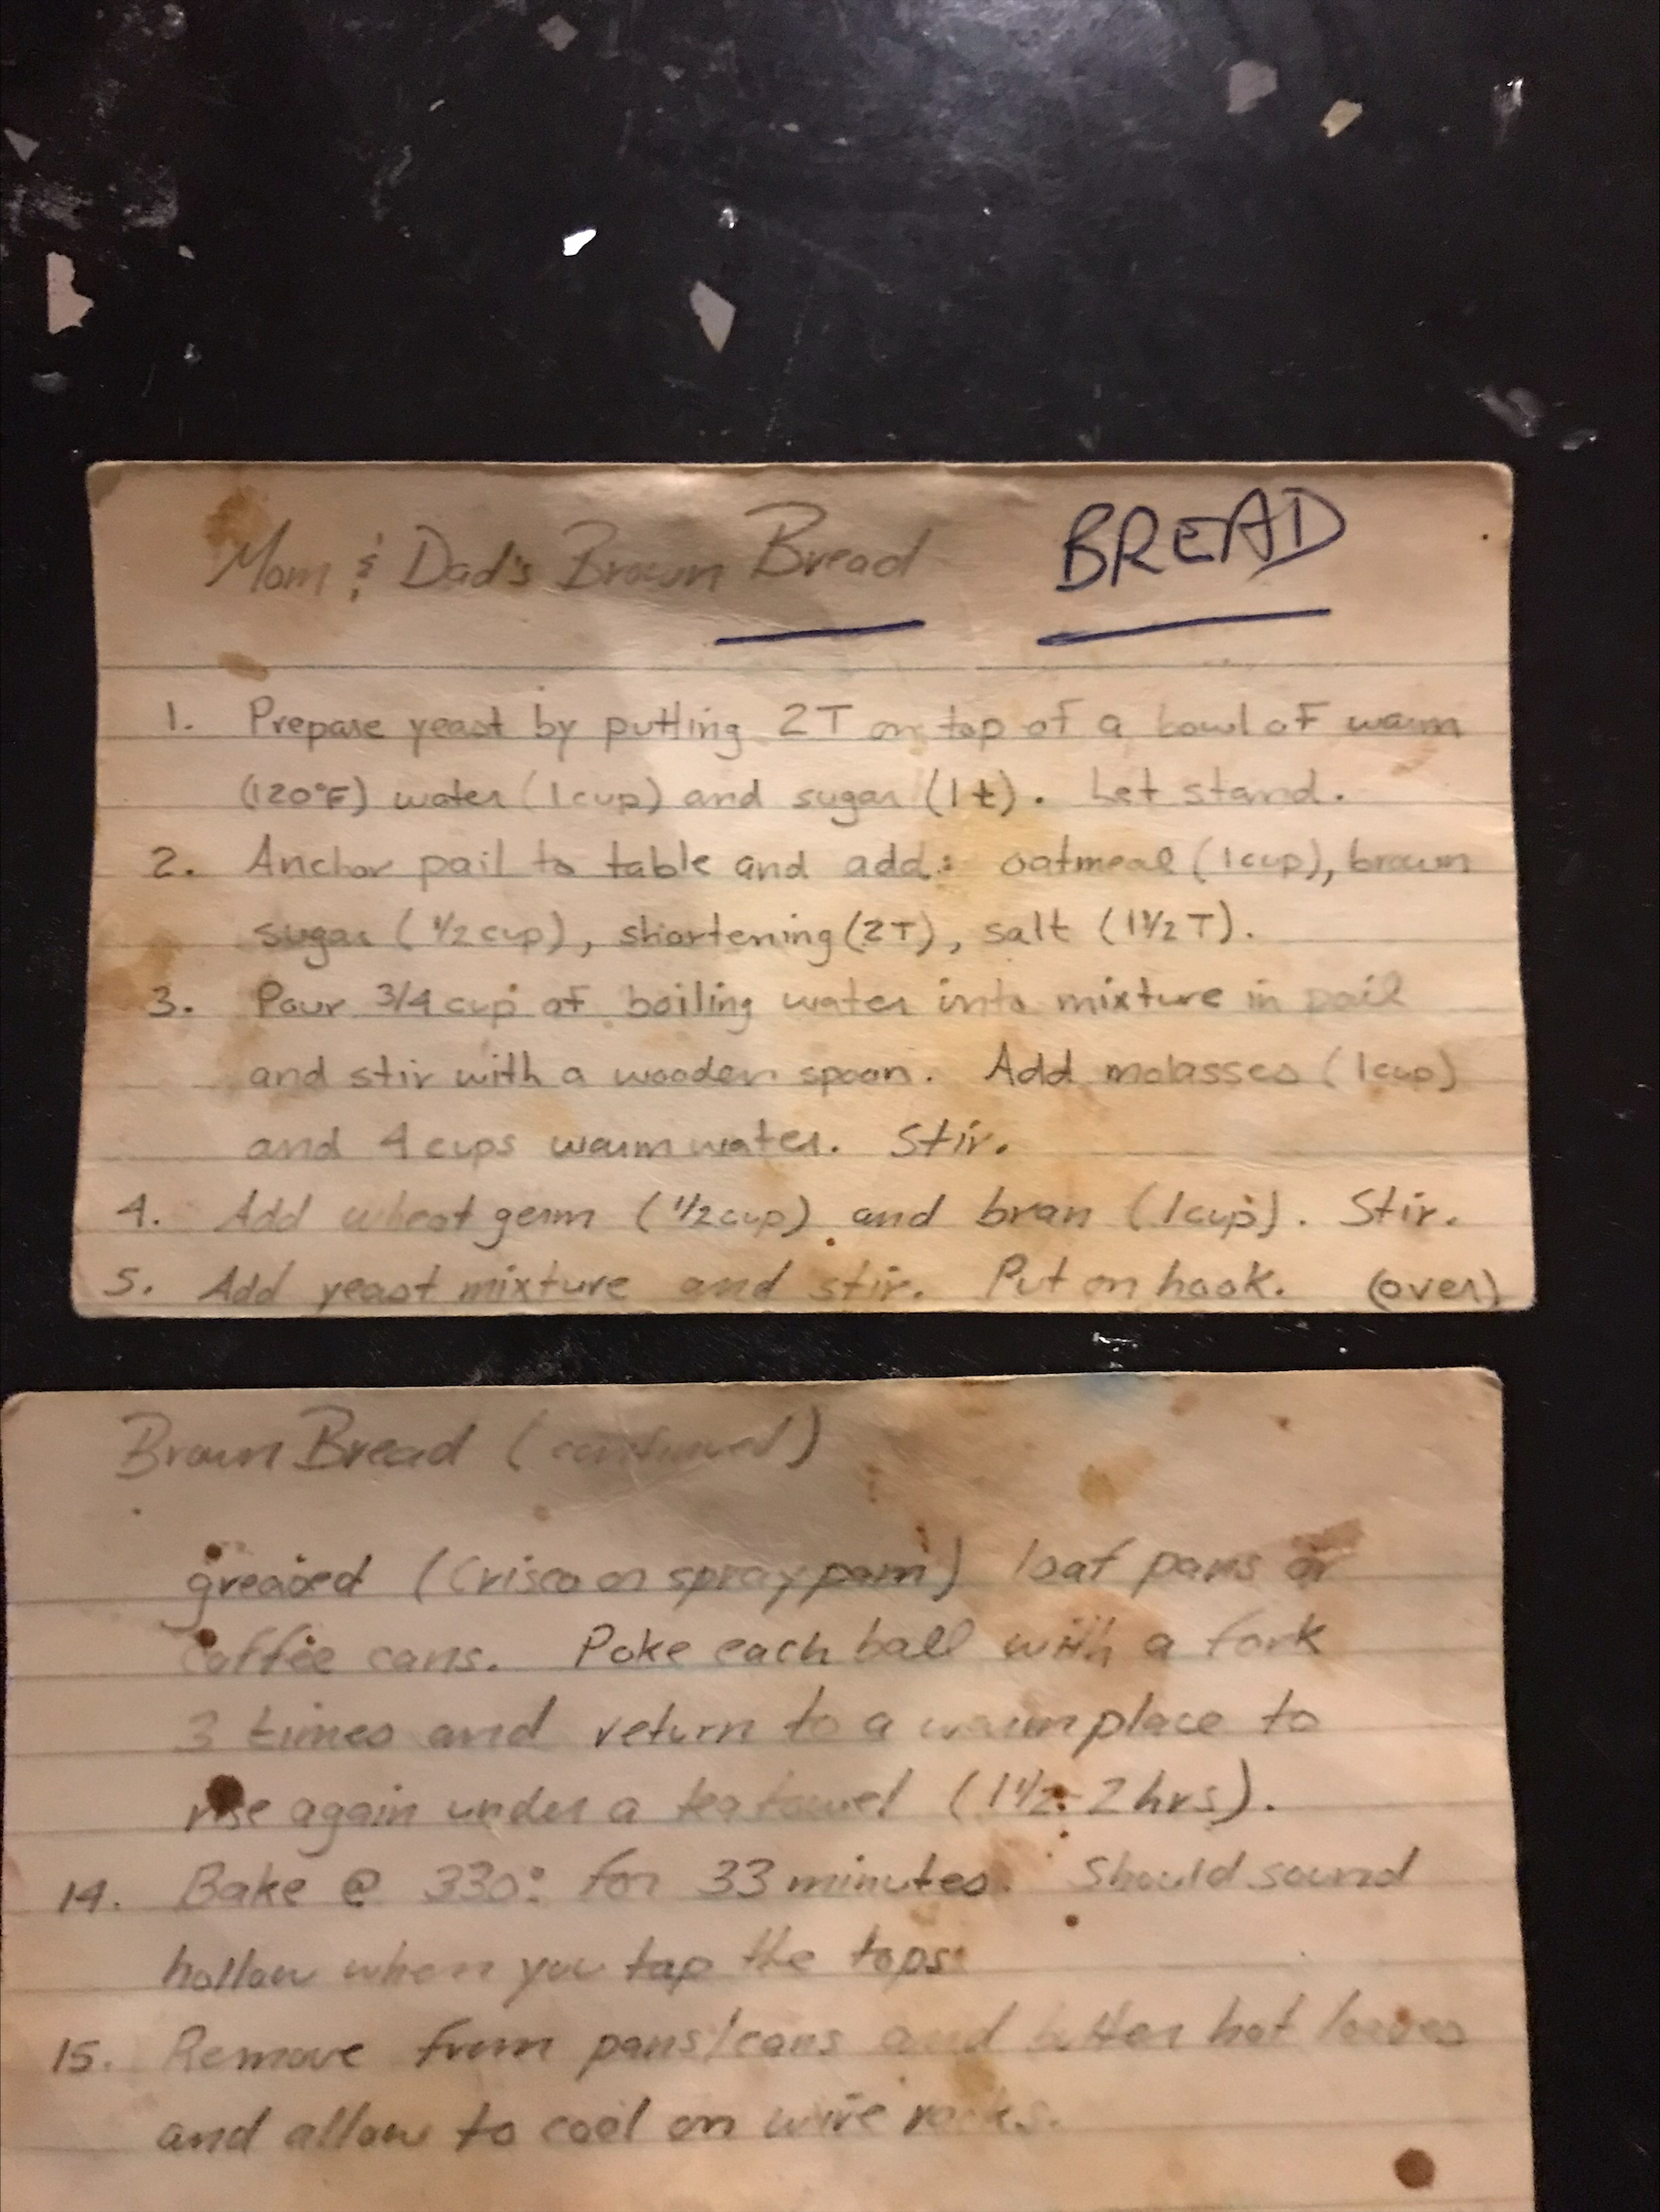 Mom & Dad's Brown Bread BREAD
1. Prepare yeast by putting 2T on top of a bowl of warm
(120°F) water (1 cup) and sugar (1t). Let stand.
2. Anchor pail to table and add: oatmeal (1 cup), brown
sugar (1/2 cup), shortening (2T), salt (1 1/2 T).
3. Pour 3/4 cup of boiling water into mixture in pail
and stir with a wooden spoon. Add molasses (1 cup)
and 4 cups warm water. Stir.
4. Add wheat germ (1/2 cup) and bran (1 cup). Stir.
5. Add yeast mixture and stir. Put on hook. (over)
Brown Bread (continued)
greased (Crisco or spray pam) loaf pans or
coffee cans. Poke each ball with a fork
3 times and return to a warm place to
rise again under a tea towel (1 1/2 - 2 hrs).
14. Bake @ 330° for 33 minutes. Should sound
hollow when you tap the tops.
15. Remove from pans/cans and butter hot loaves
and allow to cool on wire racks.